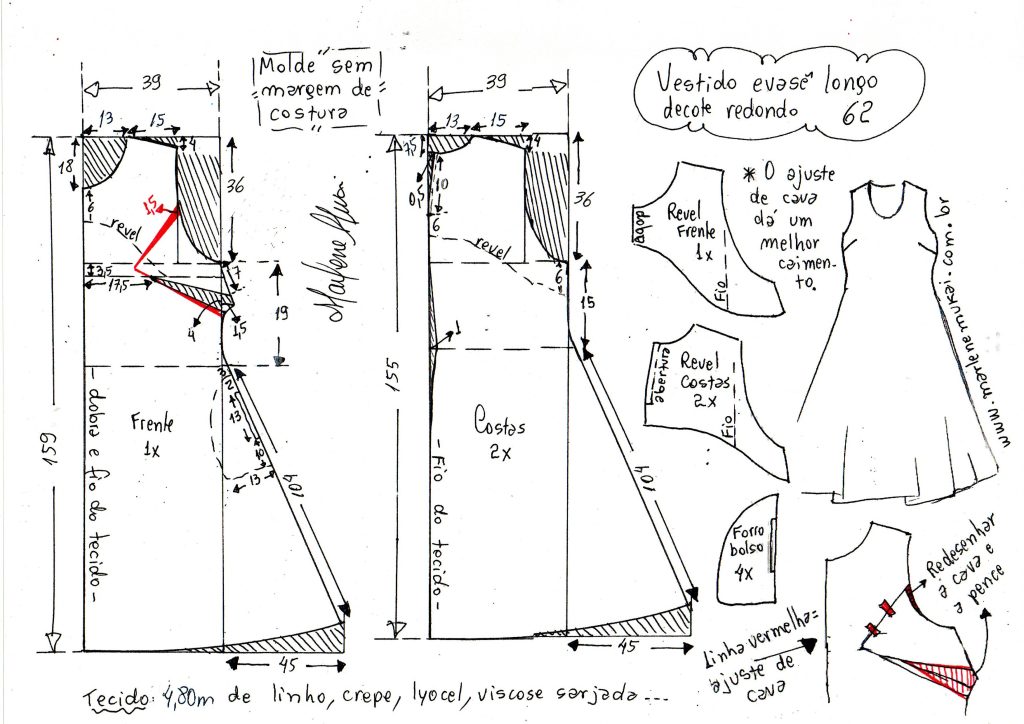 Molde sem
margem de
costura
Vestido evasê longo
decote redondo 62
39
13
15
4
18
6
1,5
36
revel
3,5
17,5
7
4
1,5
19
159
dobra e fio do tecido
Frente
1x
3
12
13
10
13
104
45
Marlene Mukai
39
13
15
4
7,5
0,5
10
6
36
revel
6
15
1
155
Fio do tecido
Costas
2x
104
45
dobra
Revel
Frente
1x
Fio
abertura
Revel
Costas
2x
Fio
Forro
bolso
4x
* O ajuste
de cava
dá um
melhor
caimen-
to.
www.marlenemukai.com.br
Redesenhar
a cava e
a pence
Linha vermelha=
ajuste de
cava
Tecido: 4,80m de linho, crepe, lyocel, viscose sarjada...